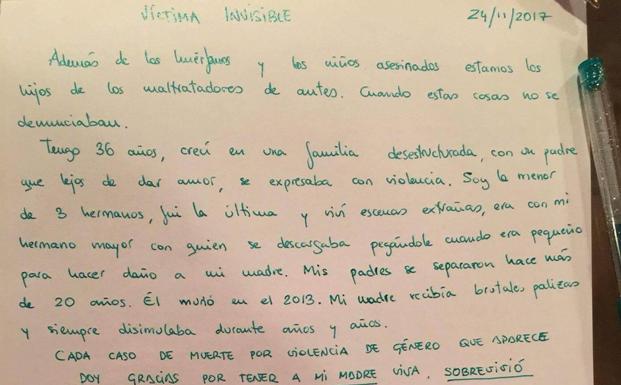 VÍCTIMA INVISIBLE 24/11/2017
Además de los huérfanos y los niños asesinados estamos los
hijos de los maltratadores de antes. Cuando estas cosas no se
denunciaban.
Tengo 36 años, crecí en una familia desestructurada, con un padre
que lejos de dar amor, se expresaba con violencia. Soy la menor
de 3 hermanos, fui la última y viví escenas extrañas, era con mi
hermano mayor con quien se descargaba pegándole cuando era pequeño
para hacer daño a mi madre. Mis padres se separaron hace más
de 20 años. Él murió en el 2013. Mi madre recibía brutales palizas
y siempre disimulaba durante años y años.
CADA CASO DE MUERTE POR VIOLENCIA DE GÉNERO QUE APARECE
DOY GRACIAS POR TENER A MI MADRE VIVA. SOBREVIVIÓ